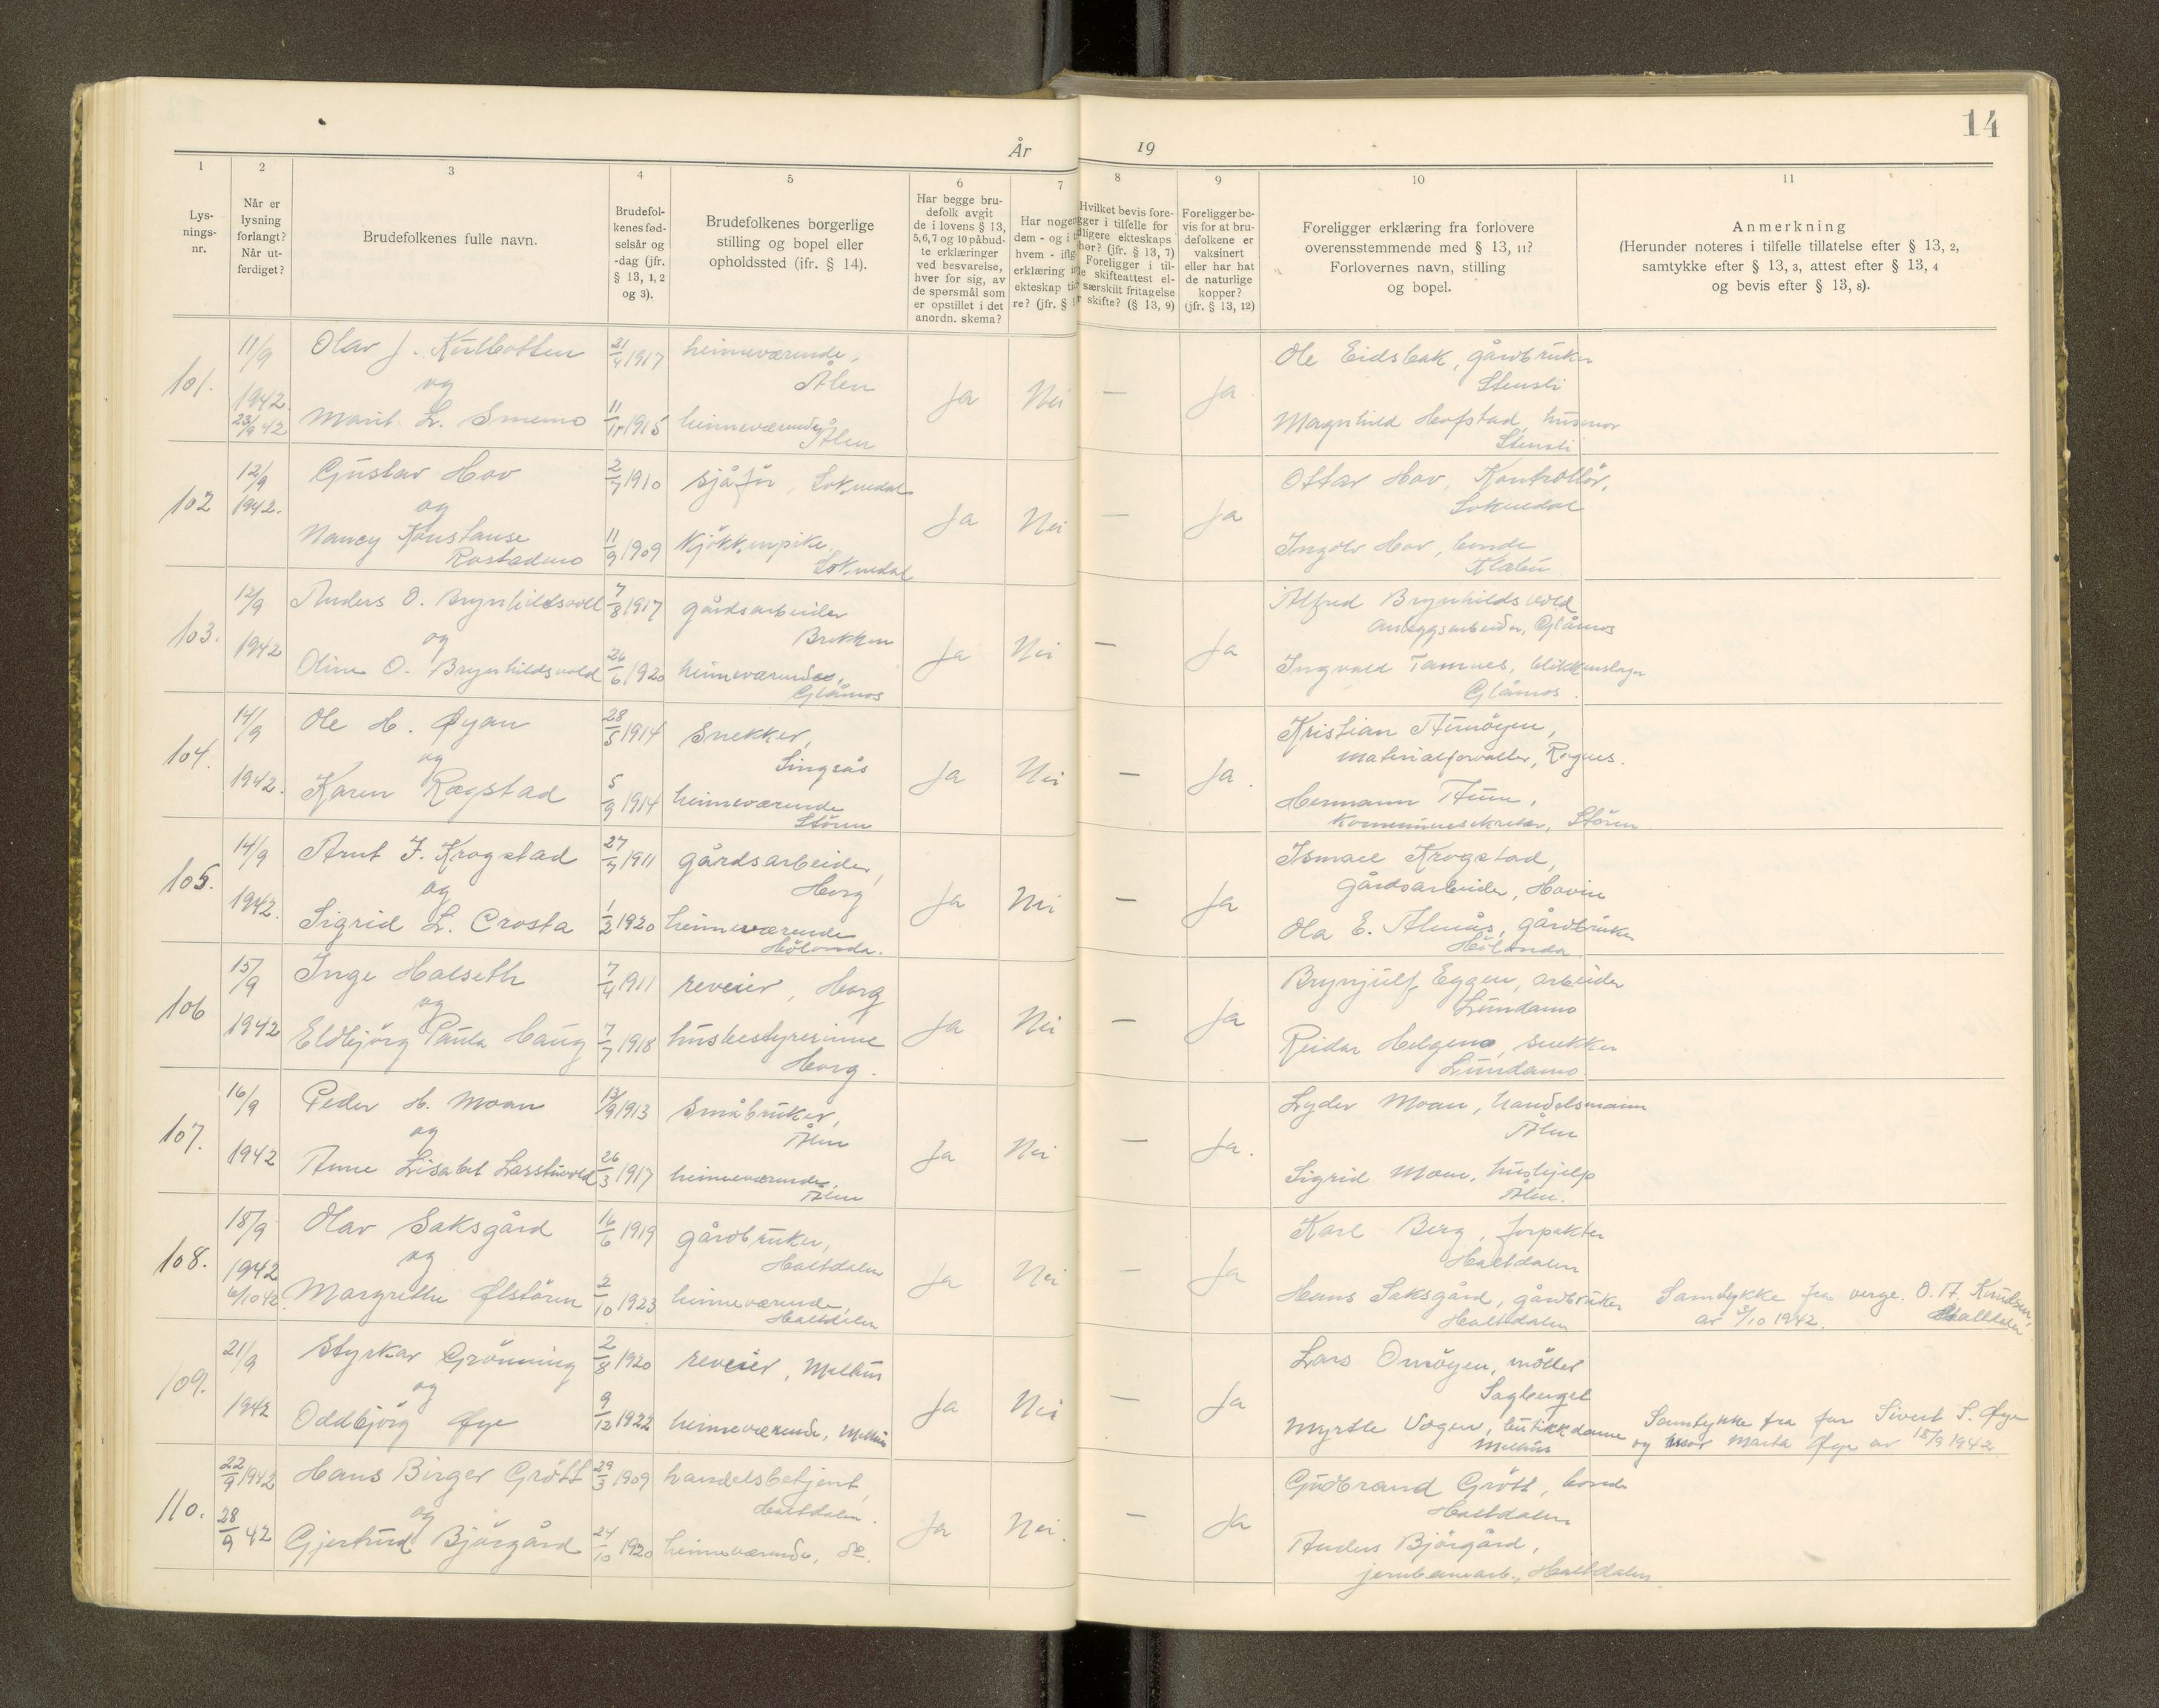 14
År 19
1 2 3 4 5 6 7 8 9 10 11
Lys-
nings-
nr.
Når er
lysning
forlangt?
Når ut-
ferdiget?
Brudefolkenes fulle navn.
Brudefol-
kenes fød-
selsår og
-dag (jfr.
§ 13, 1, 2
og 3).
Brudefolkenes borgerlige
stilling og bopel eller
opholdssted (ifr. § 14).
Har begge bru-
defolk avgit
de i lovens § 13,
5,6,7 og 10 påbud-
te erklæringer
ved besvarelse,
hver for sig, av
de spørsmål som
er opstillet i det
anordn. skema?
Har nogen
dem - og i
hvem - iflg
erklæring
ekteskap
re? (jfr. §
Hvilket bevis fore-
gger i tilfelle for
dligere ekteskaps
hør? (jfr. § 13, 7)
Foreligger i til-
le skifteattest el-
særskilt fritagelse
r skifte? (§ 13, 9)
Foreligger be-
vis for at bru-
defolkene er
vaksinert
eller har hat
de naturlige
kopper?
(jfr. § 13, 12)
Foreligger erklæring fra forlovere
overensstemmende med § 13, 11?
Forlovernes navn, stilling
og bopel.
Anmerkning
(Herunder noteres i tilfelle tillatelse efter § 13, 2,
samtykke efter § 13, 3, attest efter § 13, 4
og bevis efter § 13, 8).
101.
11/9
1942
23/9 42
Olav J. Kulbotten
og
Marit L. Smemo
21/4 1917
11/11 1915
heimeværende,
Ålen
heimeværende,
Ålen
Ja Nei — Ja
Ole Eidsbak, gårdbruker
Stensli
Magnhild Hofstad, husmor
Stensli
102
12/9
1942.
Gustav Hov
og
Nancy Konstanse
Rostadmo
2/7 1910
11/9 1909
sjåför, Soknedal
Kjökkenpike,
Soknedal
Ja Nei — Ja
Ottar Hov, Kontrollör,
Soknedal
Ingolv Hov, bonde
Klæbu
103.
12/9
1942
Anders O. Brynhildsvoll
og
Oline O. Brynhildsvold
7/8 1917
26/6 1920
gårdsarbeider
Brekken
heimeværende,
Glåmos
Ja Nei — Ja
Alfred Brynhildsvold
anleggsarbeider, Glåmos
Ingvald Tamnes, blikkenslager
Glåmos.
104.
14/9
1942.
Ole H. Øyan
og
Karen Rogstad
28/5 1914
5/9 1914
Snekker,
Singsås
heimeværende
Stören
Ja Nei — Ja.
Kristian
materialforvalter, Rognes.
Hermann
Kommunesekretær, Stören
105.
14/9
1942.
Arnt J. Krogstad
og
Sigrid L. Crosta
27/7 1911
1/2 1920
gårdsarbeider,
Horg
heimeværende
Hölonda.
Ja Nei — Ja
Ismael Krogstad,
gårdsarbeider, Hovin
Ola E. Almås, gårdbruker
Hölonda
106
15/9
1942
Inge Halseth
og
Eldbjörg Paula Haug
7/4 1911
7/7 1918
reveier, Horg
husbestyrerinne
Horg.
Ja Nei — Ja
Brynjulf Eggen, arbeider
Lundamo
Reidar Helgemo, snekker
Lundamo
107.
16/9
1942
Peder H. Moan
og
Anne Lisabet Larstuvold
13/9 1913
26/3 1917
Småbruker,
Ålen
heimeværende,
Ålen
Ja Nei — Ja.
Lyder Moan, handelsmann
Ålen
Sigrid Moan, hushjelp
Ålen.
108.
18/9
1942
6/10 42.
Olav Saksgård
og
Margrethe Ølstören
16/6 1919
2/10 1923
gårdbruker,
Haltdalen
heimeværende,
Haltdalen
Ja Nei — Ja
Karl Berg, forpakter
Haltdalen
Hans Saksgård, gårdbruker
Haltdalen
Samtykke fra verge. O. A. Knudsen,
av 3/10 1942. Haltdalen
109.
21/9
1942
Styrkar Grönning
og
Oddbjörg Øye
2/8 1920
9/12 1922
reveier, Melhus
heimeværende, Melhus
Ja Nei — Ja
Lars Omögen, möller
Sagberget
Myrtle Vogen, butikkdame
Melhus
Samtykke fra far Sivert S. Øye
og mor Marta Øye av 18/9 1942
110.
22/9 1942
28/9 42
Hans Birger Grött
og
Gjertrud Björgård
29/3 1909
24/10 1920
handelsbetjent,
Haltdalen.
heimeværende, do.
Ja Nei. — Ja
Gudbrand Grött, bonde
Haltdalen
Anders Björgård,
jernbanearb., Haltdalen